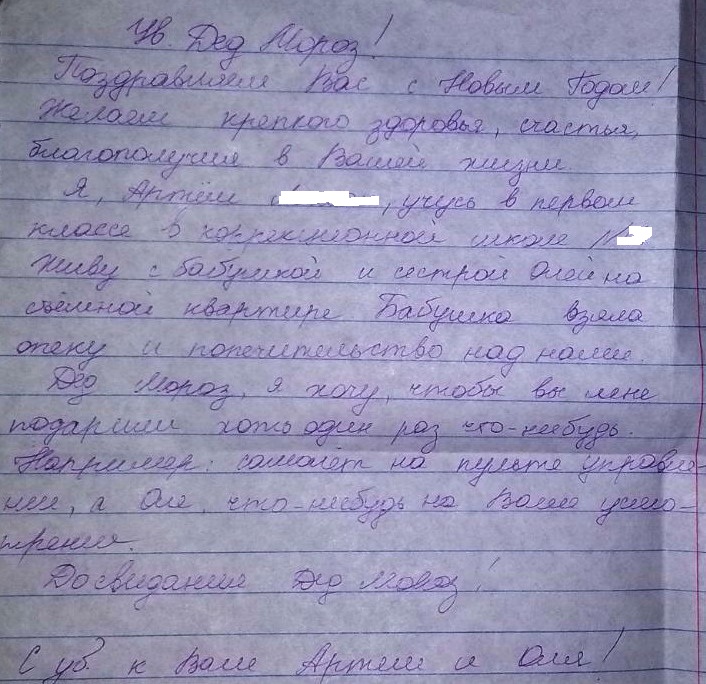 Ув. Дед Мороз!
Поздравляем Вас с Новым Годом!
Желаем крепкого здоровья, счастья,
благополучия в Вашей жизни.
Я, Артём , учусь в первом
классе в коррекционной школе №
Живу с бабушкой и сестрой Олей на
съёмной квартире Бабушка взяла
опеку и попечительство над нами.
Дед Мороз, я хочу, чтобы вы мне
подарили хоть один раз что-нибудь.
Например: самолёт на пульте управле-
нии, а Оле, что-нибудь на Ваше усмо-
трения.
Досвидании Дед Мороз!
С ув. к Вам Артём и Оля!